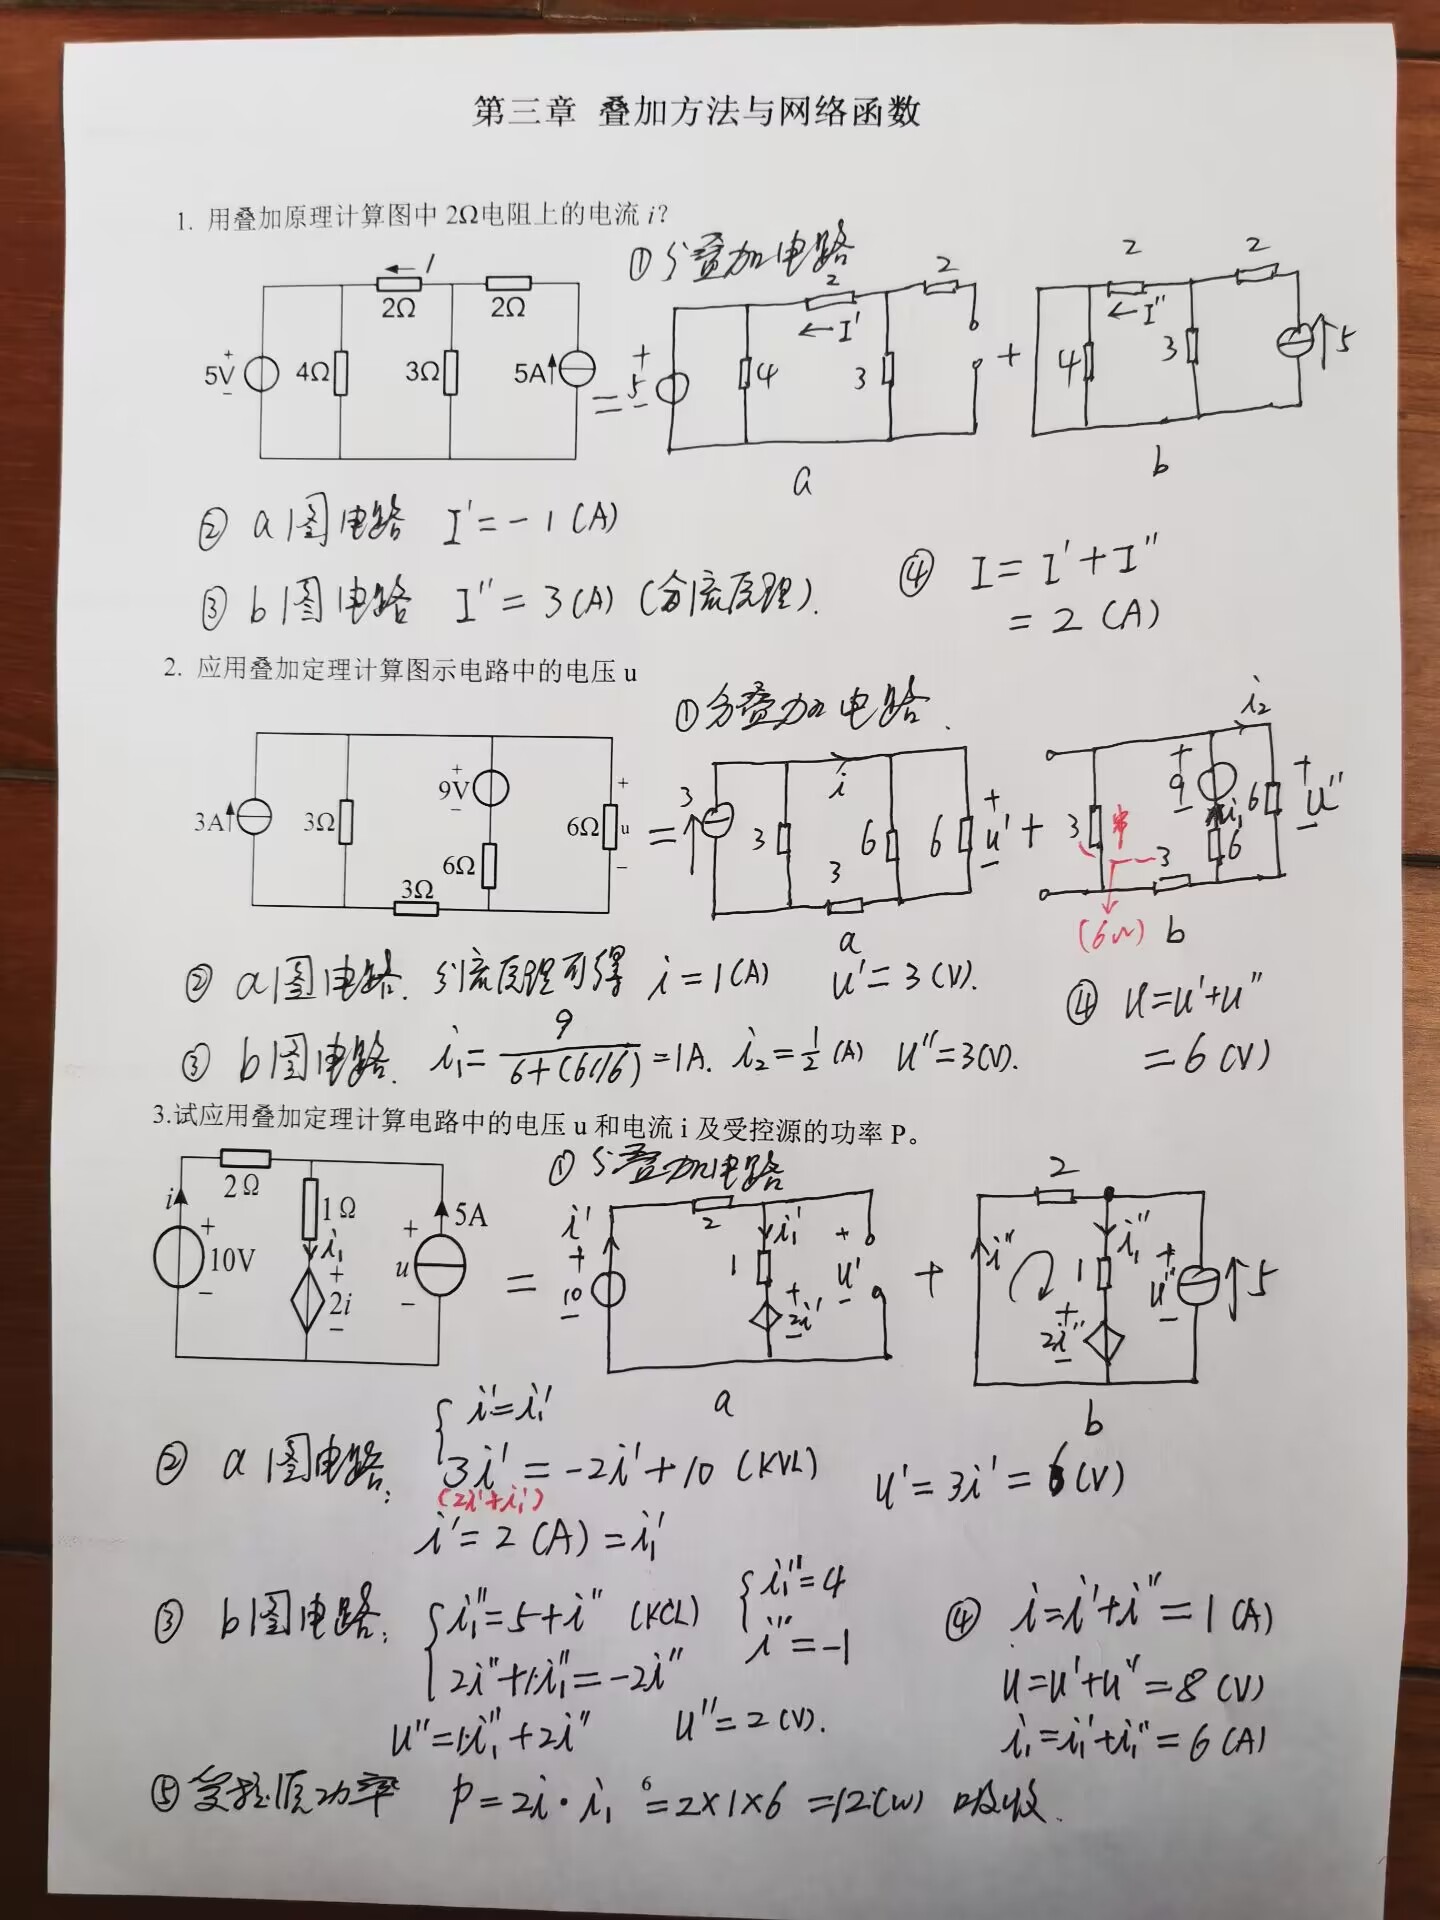 第三章 叠加方法与网络函数
1. 用叠加原理计算图中 2Ω电阻上的电流 i?
①分叠加电路
I
2Ω 2Ω
5V + - 4Ω 3Ω 5A
= + 5 - 4 2 ← I' 3 2 + 4 2 ← I'' 3 2 5
a b
② a图电路 I' = -1 (A)
③ b图电路 I'' = 3 (A) (分流原理).
④ I = I' + I''
= 2 (A)
2. 应用叠加定理计算图示电路中的电压 u
①分叠加电路.
3A 3Ω 9V + - 6Ω 3Ω 6Ω + u -
= 3 3 i 6 3 6 + u' - + 3 串 3 + 9 - i₁ 6 i₂ 6 + u'' -
(6Ω)
a b
② a图电路. 分流原理可得 i = 1 (A) u' = 3 (V).
③ b图电路. i₁ = 9/(6+(6//6)) = 1A. i₂ = 1/2 (A) u'' = 3 (V).
④ u = u' + u''
= 6 (V)
3.试应用叠加定理计算电路中的电压 u 和电流 i 及受控源的功率 P。
①分叠加电路
i 2Ω 1Ω i₁ 5A
+ 10V - + 2i - + u -
= i' + 10 - 2 i₁' 1 + 2i' - + u' - + i'' 2 i₁'' 1 + 2i'' - + u'' - 5
a b
② a图电路: { i' = i₁'
3i' = -2i' + 10 (KVL)
(2i'+i₁')
i' = 2 (A) = i₁'
u' = 3i' = 6 (V)
③ b图电路: { i₁'' = 5 + i'' (KCL)
2i'' + 1·i₁'' = -2i''
{ i₁'' = 4
i'' = -1
u'' = 1·i₁'' + 2i'' u'' = 2 (V).
④ i = i' + i'' = 1 (A)
u = u' + u'' = 8 (V)
i₁ = i₁' + i₁'' = 6 (A)
⑤ 受控源功率 P = 2i · i₁ = 2×1×6 = 12 (W) 吸收.